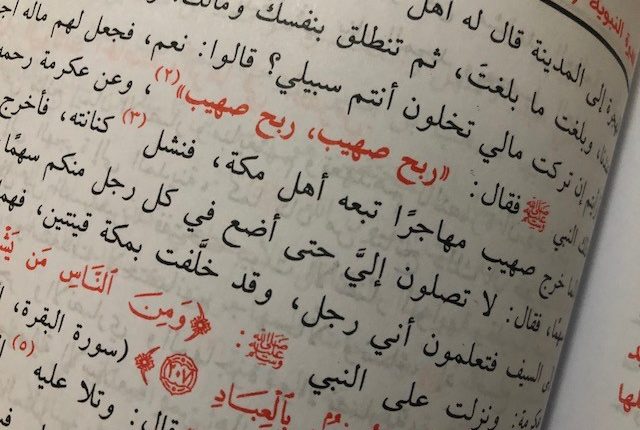 النبوية
إلى المدينة قال له أهل
وبلغت ما بلغتَ، ثم تنطلق بنفسك ومالك،
إن تركت مالي تخلون أنتم سبيلي؟ قالوا: نعم، فجعل لهم ماله
النبي ﷺ فقال: «ربح صهيب، ربح صهيب»(٢)، وعن عكرمة رحمه
خرج صهيب مهاجرًا تبعه أهل مكة، فنثل(٣) كنانته، فأخرج
فقال: لا تصلون إليَّ حتى أضع في كل رجل منكم سهمًا
السيف فتعلمون أني رجل، وقد خلَّفت بمكة قينتين، فهما
ونزلت على النبي ﷺ: ﴿وَمِنَ ٱلنَّاسِ مَن
بِٱلْعِبَادِ ٢٠٧﴾ (سورة البقرة،
قال: وتلا عليه (٥)